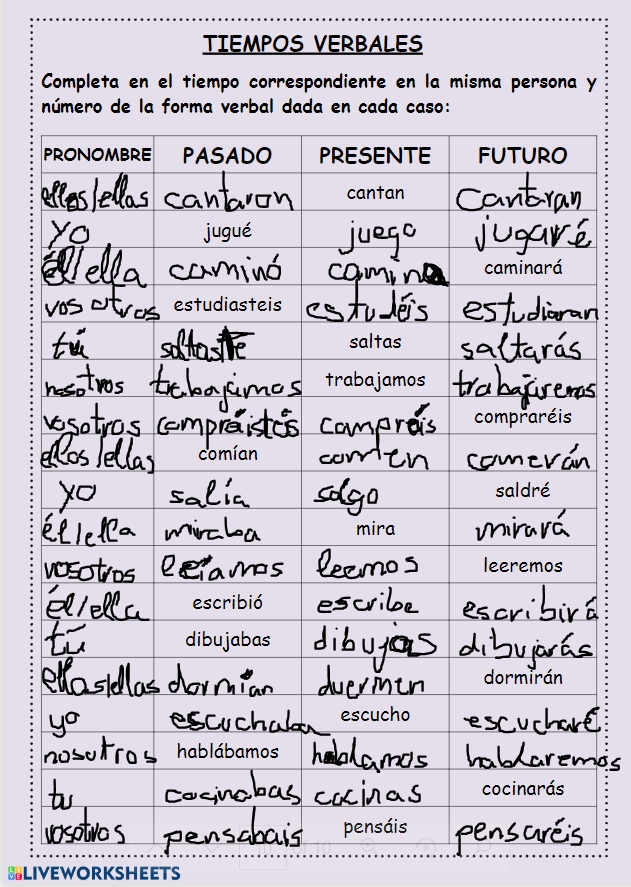 TIEMPOS VERBALES
Completa en el tiempo correspondiente en la misma persona y
número de la forma verbal dada en cada caso:
PRONOMBRE PASADO PRESENTE FUTURO
ellos/ellas cantaron cantan cantaran
yo jugué juego jugaré
él/ella caminó camina caminará
vosotros estudiasteis estudéis estudiaran
tú saltaste saltas saltarás
nosotros trabajimos trabajamos trabajiremos
vosotros compráistes compráis compraréis
ellos/ellas comían comen comerán
yo salía salgo saldré
él/ella miraba mira mirará
vosotros leeíamos leemos leeremos
él/ella escribió escribe escribirá
tú dibujabas dibujas dibujarás
ellas/ellas dormían duermen dormirán
yo escuchaba escucho escucharé
nosotros hablábamos hablamos hablaremos
tu cocinabas cocinas cocinarás
vosotros pensabais pensáis pensaréis
LIVEWORKSHEETS